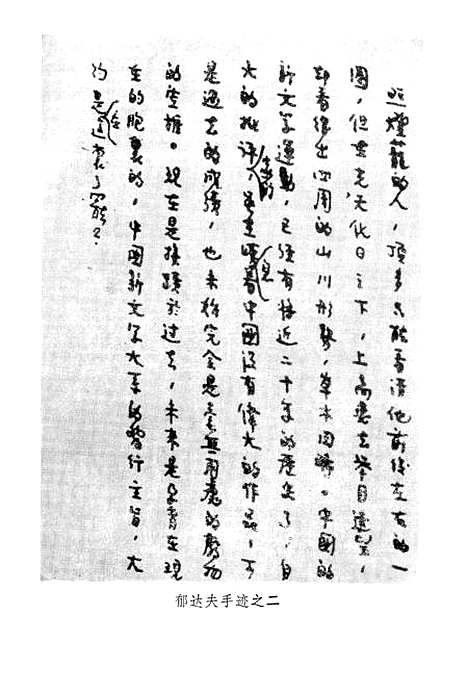 照燈籠的人，頂多只能看清他前後左右的一
圈，但在光天化日之下，上高處去舉目遠望，
却看得出四周的山川形勢，草木田疇。中國的
新文學運動，已經有將近二十年的歷史了，自
大的批評家們，雖在嘆息着中國沒有偉大的作品，可
是過去的成績，也未始完全是毫無用處的廢物
的空堆。現在是接續於過去，未來是孕育在現
在的胞裏的，中國新文學大系的發行主旨，大
約是在這裏了罷？
郁达夫手迹之二